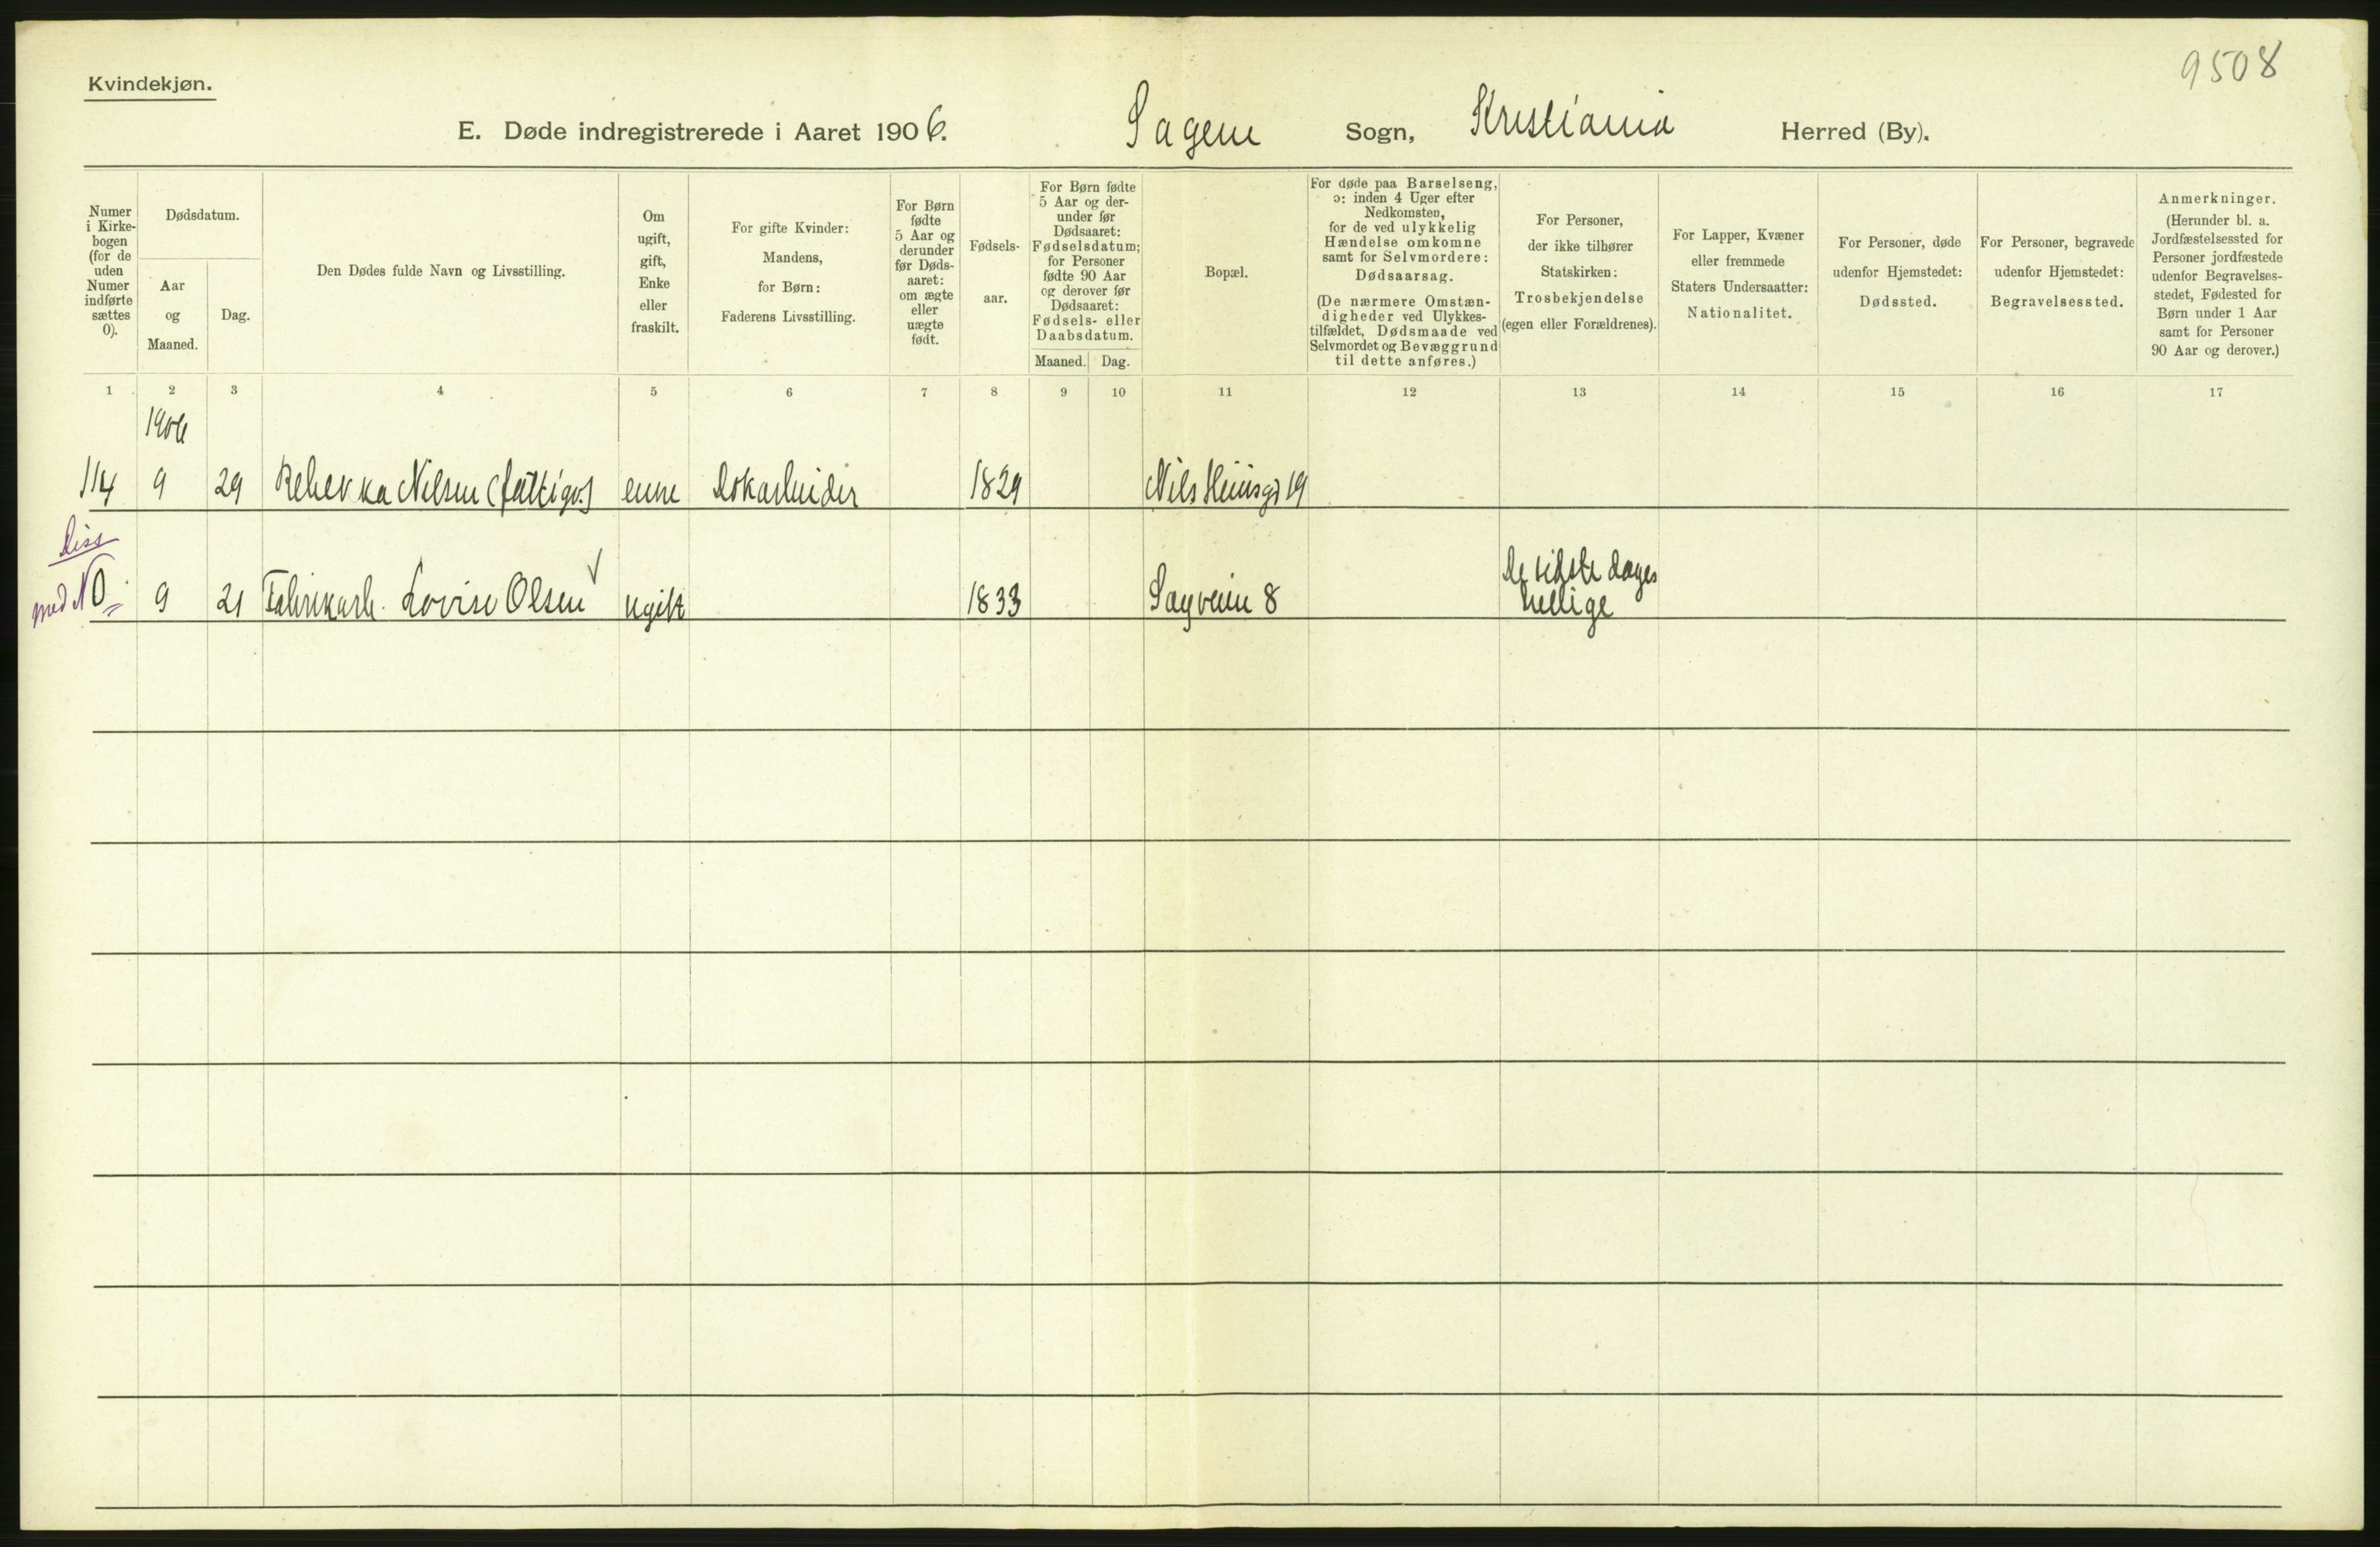 9508
Kvindekjøn.
E. Døde indregistrerede i Aaret 1906. Sagene Sogn, Kristiania Herred (By).
Numer i Kirke-bogen (for de uden Numer indførte sættes 0).
Dødsdatum.
Aar og Maaned.
Dag.
Den Dødes fulde Navn og Livsstilling.
Om ugift, gift, Enke eller fraskilt.
For gifte Kvinder: Mandens, for Børn: Faderens Livsstilling.
For Børn fødte 5 Aar og derunder før Døds-aaret: om ægte eller uægte født.
Fødsels-aar.
For Børn fødte 5 Aar og der-under før Dødsaaret: Fødselsdatum; for Personer fødte 90 Aar og derover før Dødsaaret: Fødsels- eller Daabsdatum.
Maaned. Dag.
Bopæl.
For døde paa Barselseng, ɔ: inden 4 Uger efter Nedkomsten, for de ved ulykkelig Hændelse omkomne samt for Selvmordere: Dødsaarsag.
(De nærmere Omstæn-digheder ved Ulykkes-tilfældet, Dødsmaade ved Selvmordet og Bevæggrund til dette anføres.)
For Personer, der ikke tilhører Statskirken: Trosbekjendelse (egen eller Forældrenes).
For Lapper, Kvæner eller fremmede Staters Undersaatter: Nationalitet.
For Personer, døde udenfor Hjemstedet: Dødssted.
For Personer, begravede udenfor Hjemstedet: Begravelsessted.
Anmerkninger.
(Herunder bl. a. Jordfæstelsessted for Personer jordfæstede udenfor Begravelses-stedet, Fødested for Børn under 1 Aar samt for Personer 90 Aar og derover.)
1 2 3 4 5 6 7 8 9 10 11 12 13 14 15 16 17
1906
114 9 29 Rebekka Nilsen (fattigv.) enke Dokarbeider 1829 Nils Huusgd 19
Diss
med N
0 9 21 Fabrikarb. Lovise Olsen ugift 1833 Sagveien 8 De sidste dages
hellige